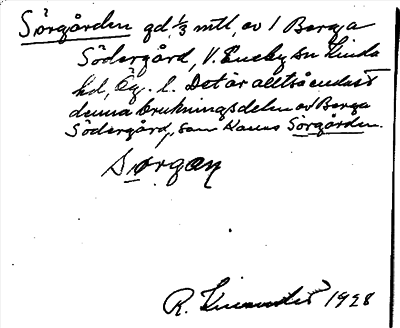 Sörgården gd 1/3 mtl, av 1 Berga
Södergård, V. Eneby sn Kinda
hd, Ög. l. Det är alltså endast
denna brukningsdelen av Berga
Södergård, som kallas Sörgården.
Sörgån
R. 1928